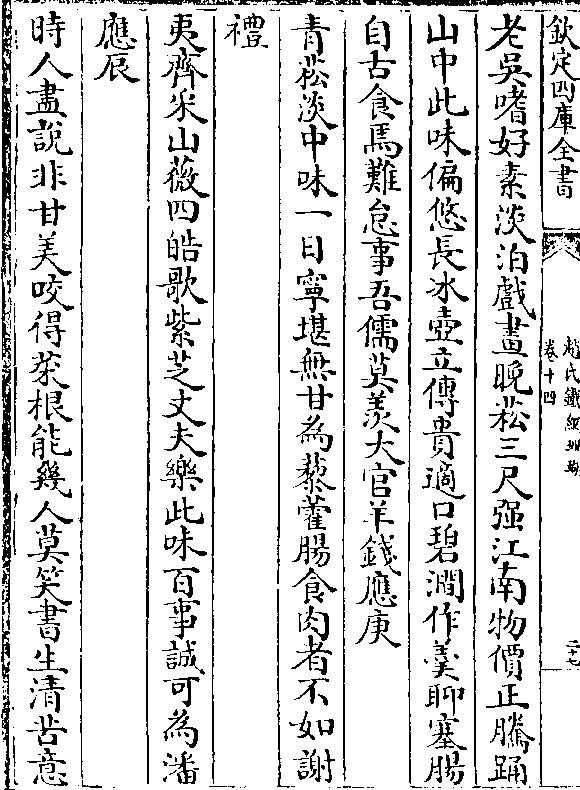 欽定四庫全書
趙氏鐵網珊瑚
卷十四
二十七
老吳嗜好素淡泊戲畫晚菘三尺强江南物價正騰踊
山中此味偏悠長冰壺立傳貴適口碧澗作羹聊塞腸
自古食馬難怠事吾儒莫羨大官羊錢應庚
青菘淡中味一日寧堪無甘為藜藿腸食肉者不如謝
禮
夷齊采山薇四皓歌紫芝丈夫樂此味百事誠可為潘
應辰
時人盡說非甘美咬得菜根能幾人莫笑書生清苦意